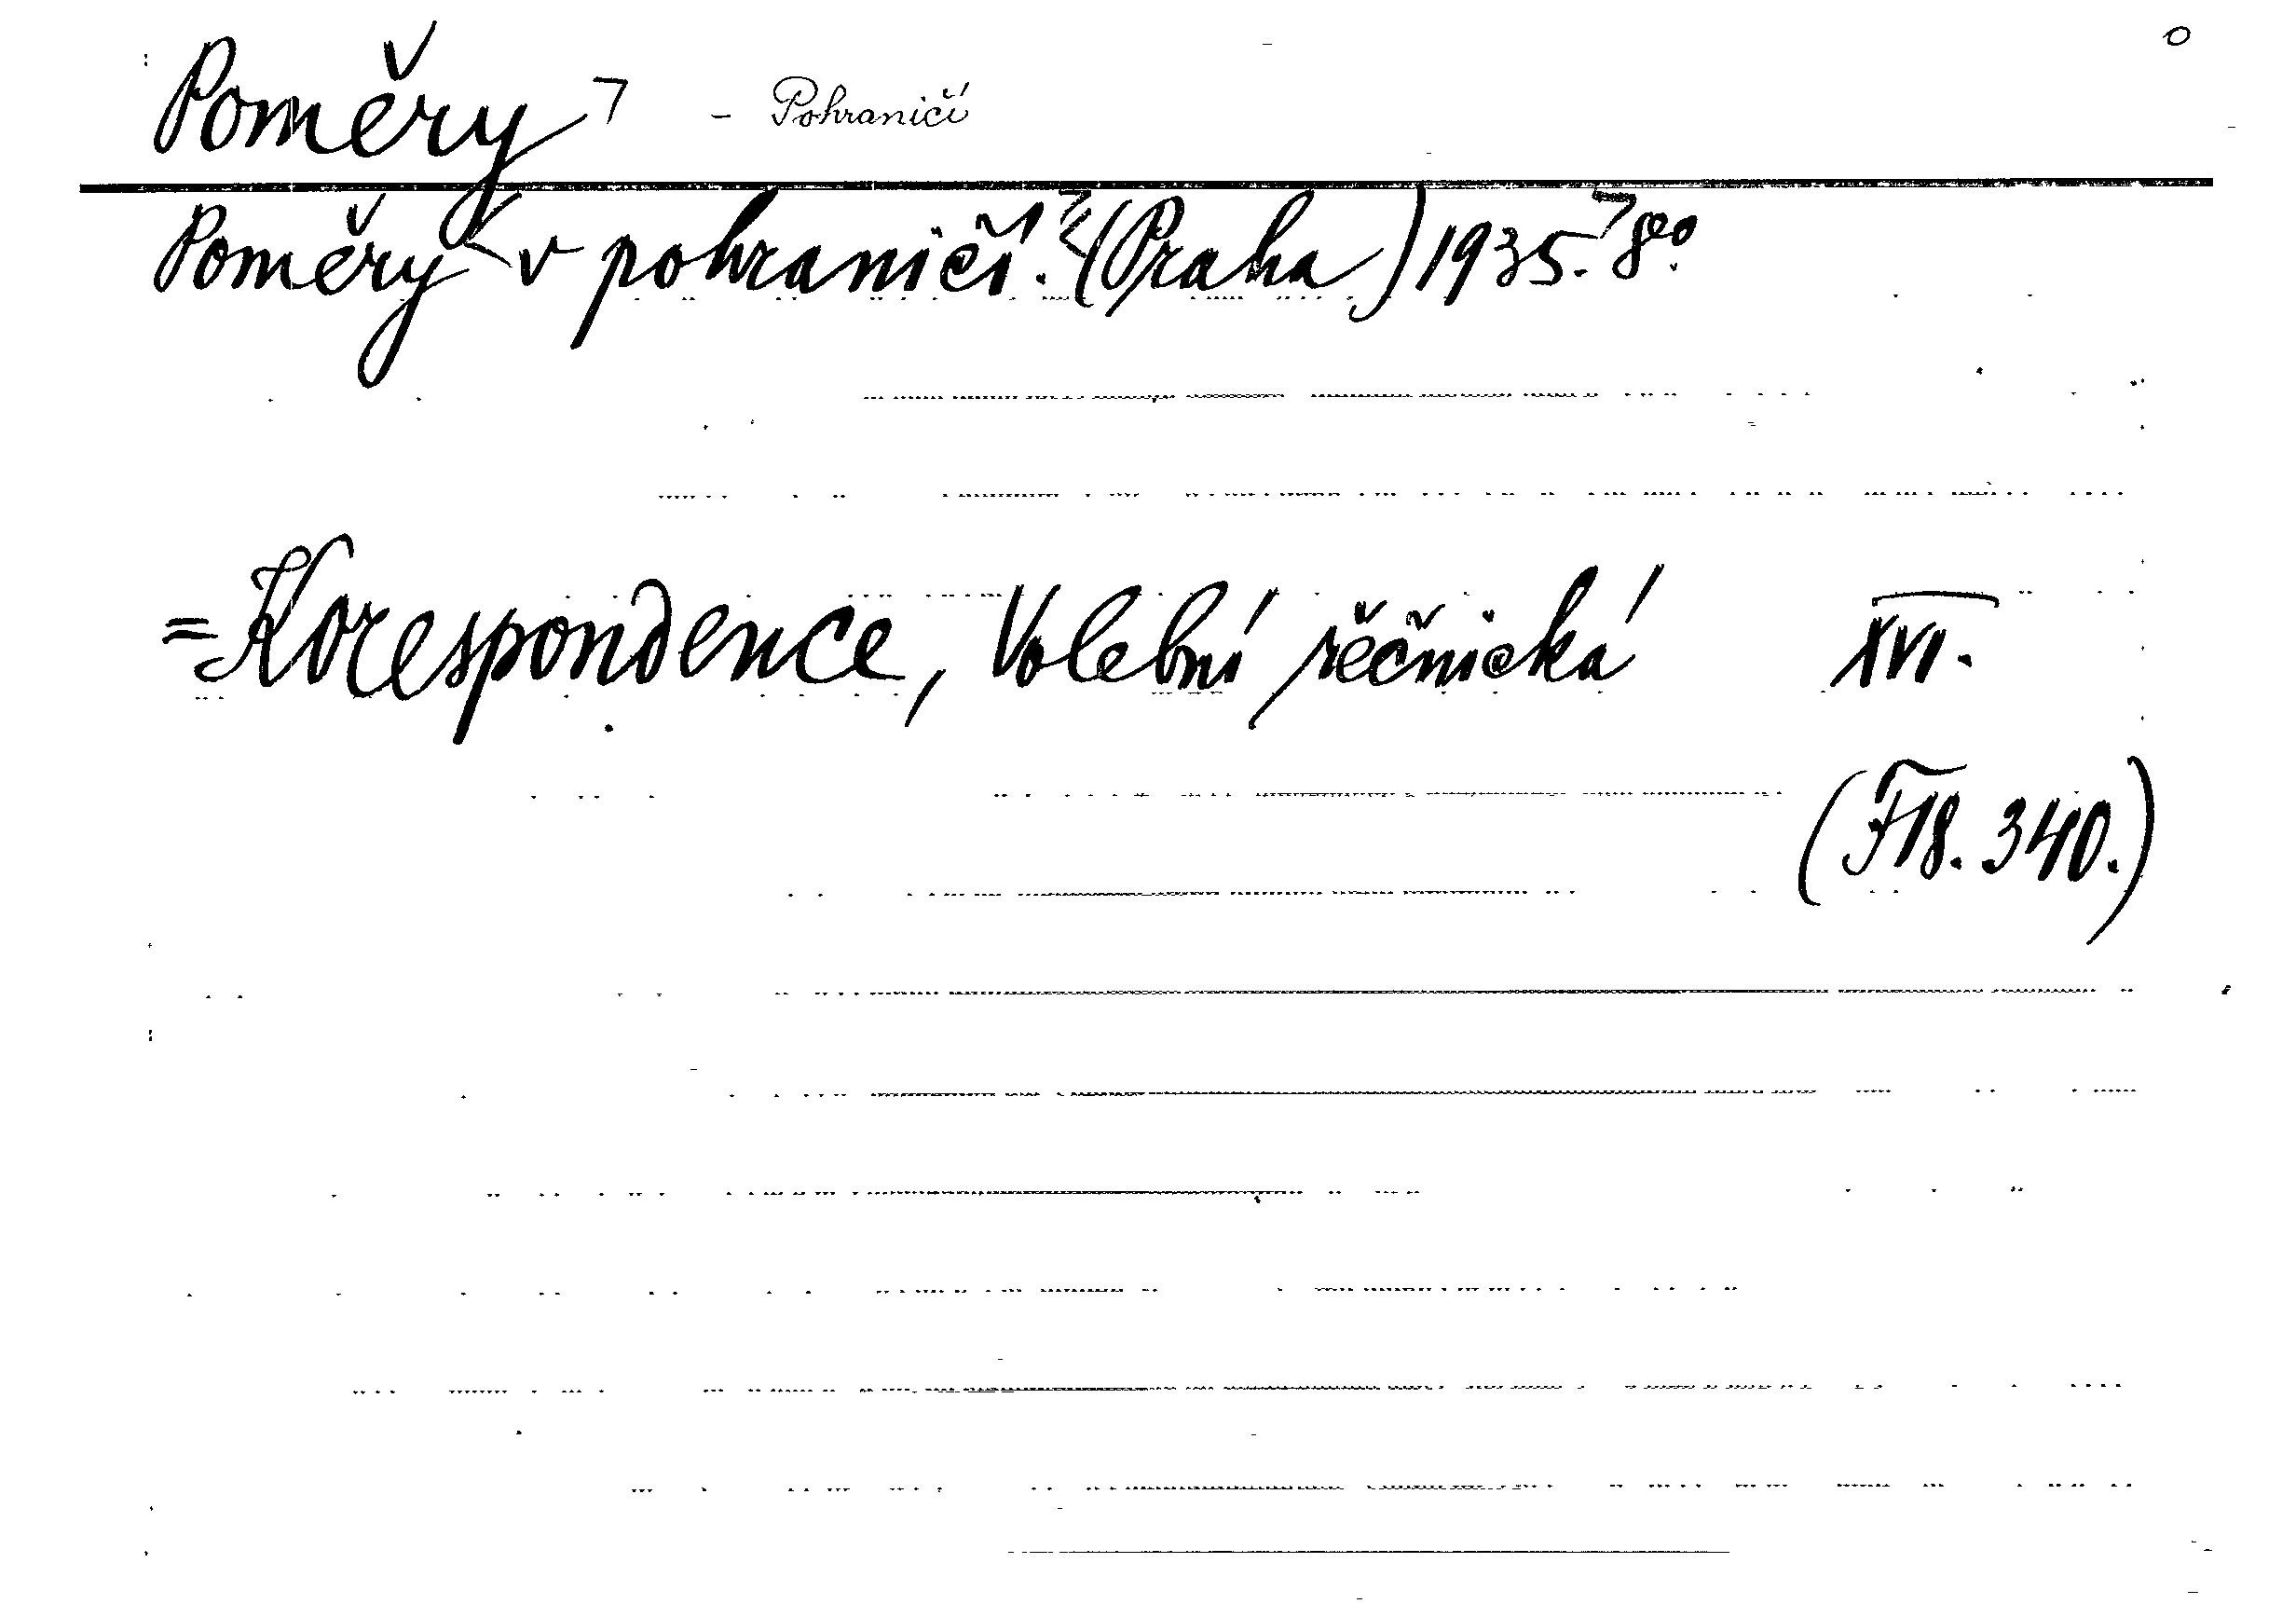 Poměry - Pohraničí
Poměry v pohraničí. (Praha) 1935. 8°.
=Korespondence, Volební řěčnická XVI.
(F 18. 340.)